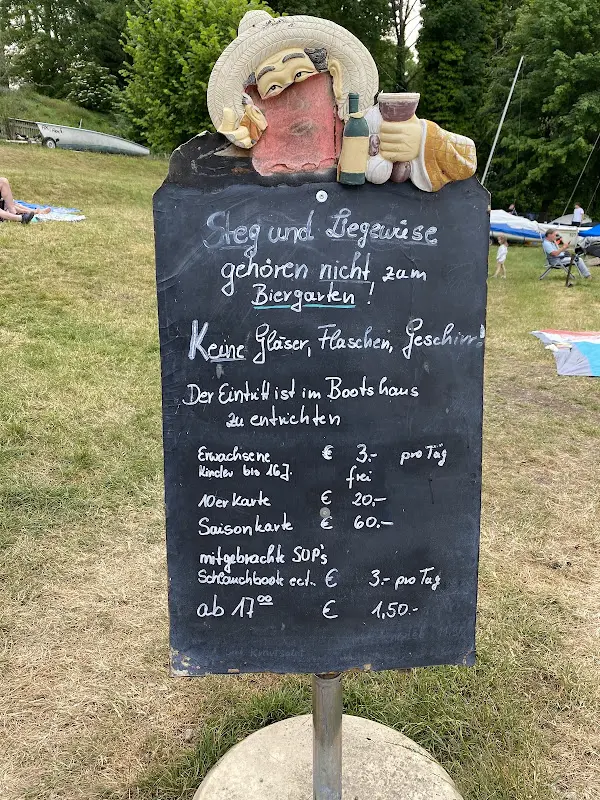 Steg und Liegewise
gehören nicht zum
Biergarten !
Keine Gläser, Flaschen, Geschirr!
Der Eintritt ist im Bootshaus
zu entrichten
Erwachsene € 3.- pro Tag
Kinder bis 16J. frei
10er Karte € 20,-
Saisonkarte € 60,-
mitgebrachte SUP's
Schlauchboote ect.. € 3.- pro Tag
ab 17⁰⁰ € 1,50.-